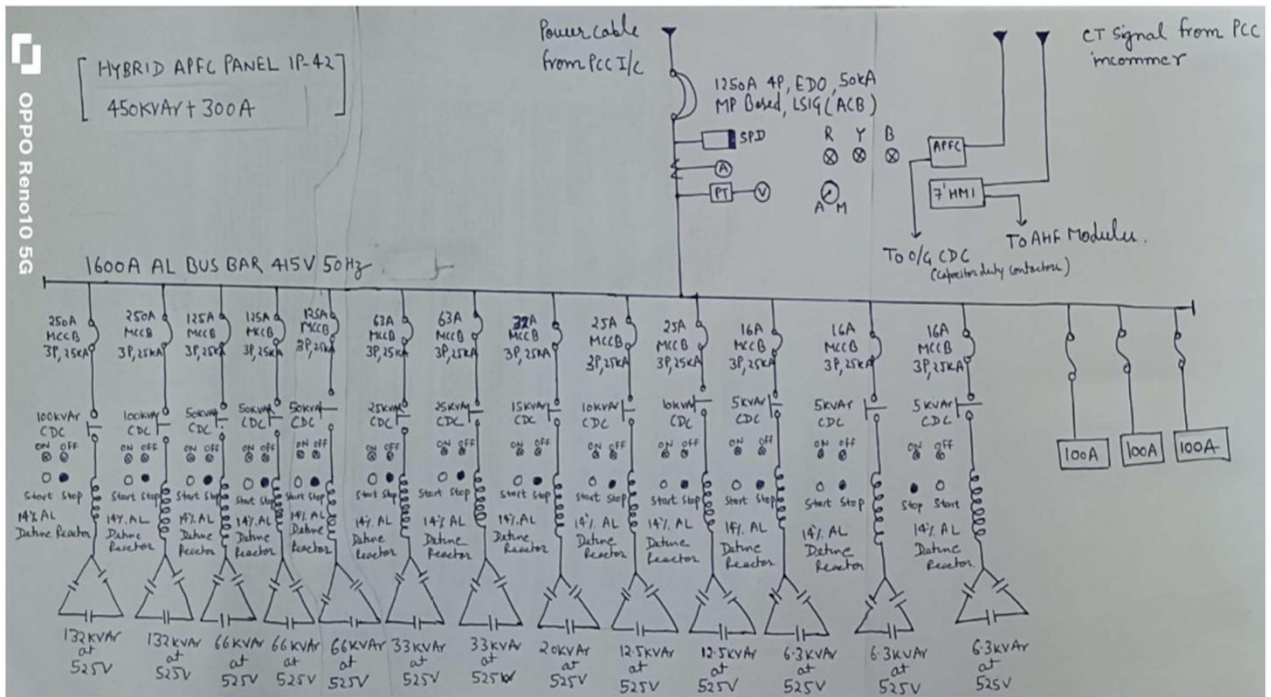 OPPO Reno10 5G
[HYBRID APFC PANEL IP-42]
450KVAr + 300A
Power cable
from PCC I/C
1250A 4P, EDO, 50kA
MP Based, LSIG (ACB)
SPD
A
PT
V
R Y B
A M
CT Signal from PCC
incommer
APFC
7" HMI
To O/G CDC
(Capacitor duty contactors)
To AHF Modules.
1600A AL BUS BAR 415V 50Hz
250A
MCCB
3P, 25kA
100kVAr
CDC
ON OFF
Start Stop
14% AL
Detune Reactor
132KVAr
at
525V
250A
MCCB
3P, 25kA
100kVAr
CDC
ON OFF
Start Stop
14% AL
Detune
Reactor
132KVAr
at
525V
125A
MCCB
3P, 25kA
50kVAr
CDC
ON OFF
Start Stop
14% AL
Detune
Reactor
66KVAr
at
525V
125A
MCCB
3P, 25kA
50kVAr
CDC
ON OFF
Start Stop
14% AL
Detune
Reactor
66KVAr
at
525V
125A
MCCB
3P, 25kA
50kVAr
CDC
ON OFF
Start Stop
14% AL
Detune
Reactor
66KVAr
at
525V
63A
MCCB
3P, 25kA
25kVAr
CDC
ON OFF
Start Stop
14% AL
Detune
Reactor
33KVAr
at
525V
63A
MCCB
3P, 25kA
25KVAr
CDC
ON OFF
Start Stop
14% AL
Detune
Reactor
33KVAr
at
525V
32A
MCCB
3P, 25kA
15KVAr
CDC
ON OFF
Start Stop
14% AL
Detune
Reactor
20KVAr
at
525V
25A
MCCB
3P, 25kA
10KVAr
CDC
ON OFF
Start Stop
14% AL
Detune
Reactor
12.5KVAr
at
525V
25A
MCCB
3P, 25kA
10kVAr
CDC
ON OFF
Start Stop
14% AL
Detune
Reactor
12.5KVAr
at
525V
16A
MCCB
3P, 25kA
5KVAr
CDC
ON OFF
Start Stop
14% AL
Detune
Reactor
6.3KVAr
at
525V
16A
MCCB
3P, 25kA
5KVAr
CDC
ON OFF
Start Stop
14% AL
Detune
Reactor
6.3KVAr
at
525V
16A
MCCB
3P, 25kA
5KVAr
CDC
ON OFF
Stop Start
14% AL
Detune
Reactor
6.3KVAr
at
525V
100A
100A
100A